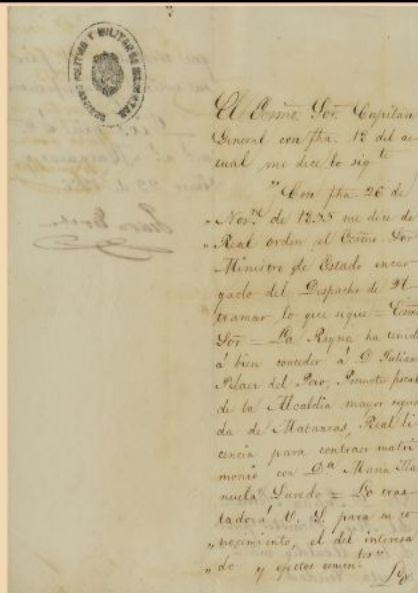 GOBIERNO POLITICO Y MILITAR DE MATANZAS
El Ecsmo. Sor. Capitan
General con fha. 12 del ac
tual me dice lo sigte
" Con fha. 26 de
" Novre de 1855 me dice de
" Real orden el Ecsmo. Sor
Ministro de Estado encar
gado del Despacho de Ul
tramar lo que sigue = Ecsmo
Sor = La Reyna ha tenido
á bien conceder á D. Julian
Pelaez del Pozo, Promotor fiscal
de la Alcaldia mayor segun
da de Matanzas, Real li
cencia para contraer matri
monio con Da Maria Ma
nuela = Lo tras
lado á V. S. para su co
" nocimiento, el del interesa
" do y efectos